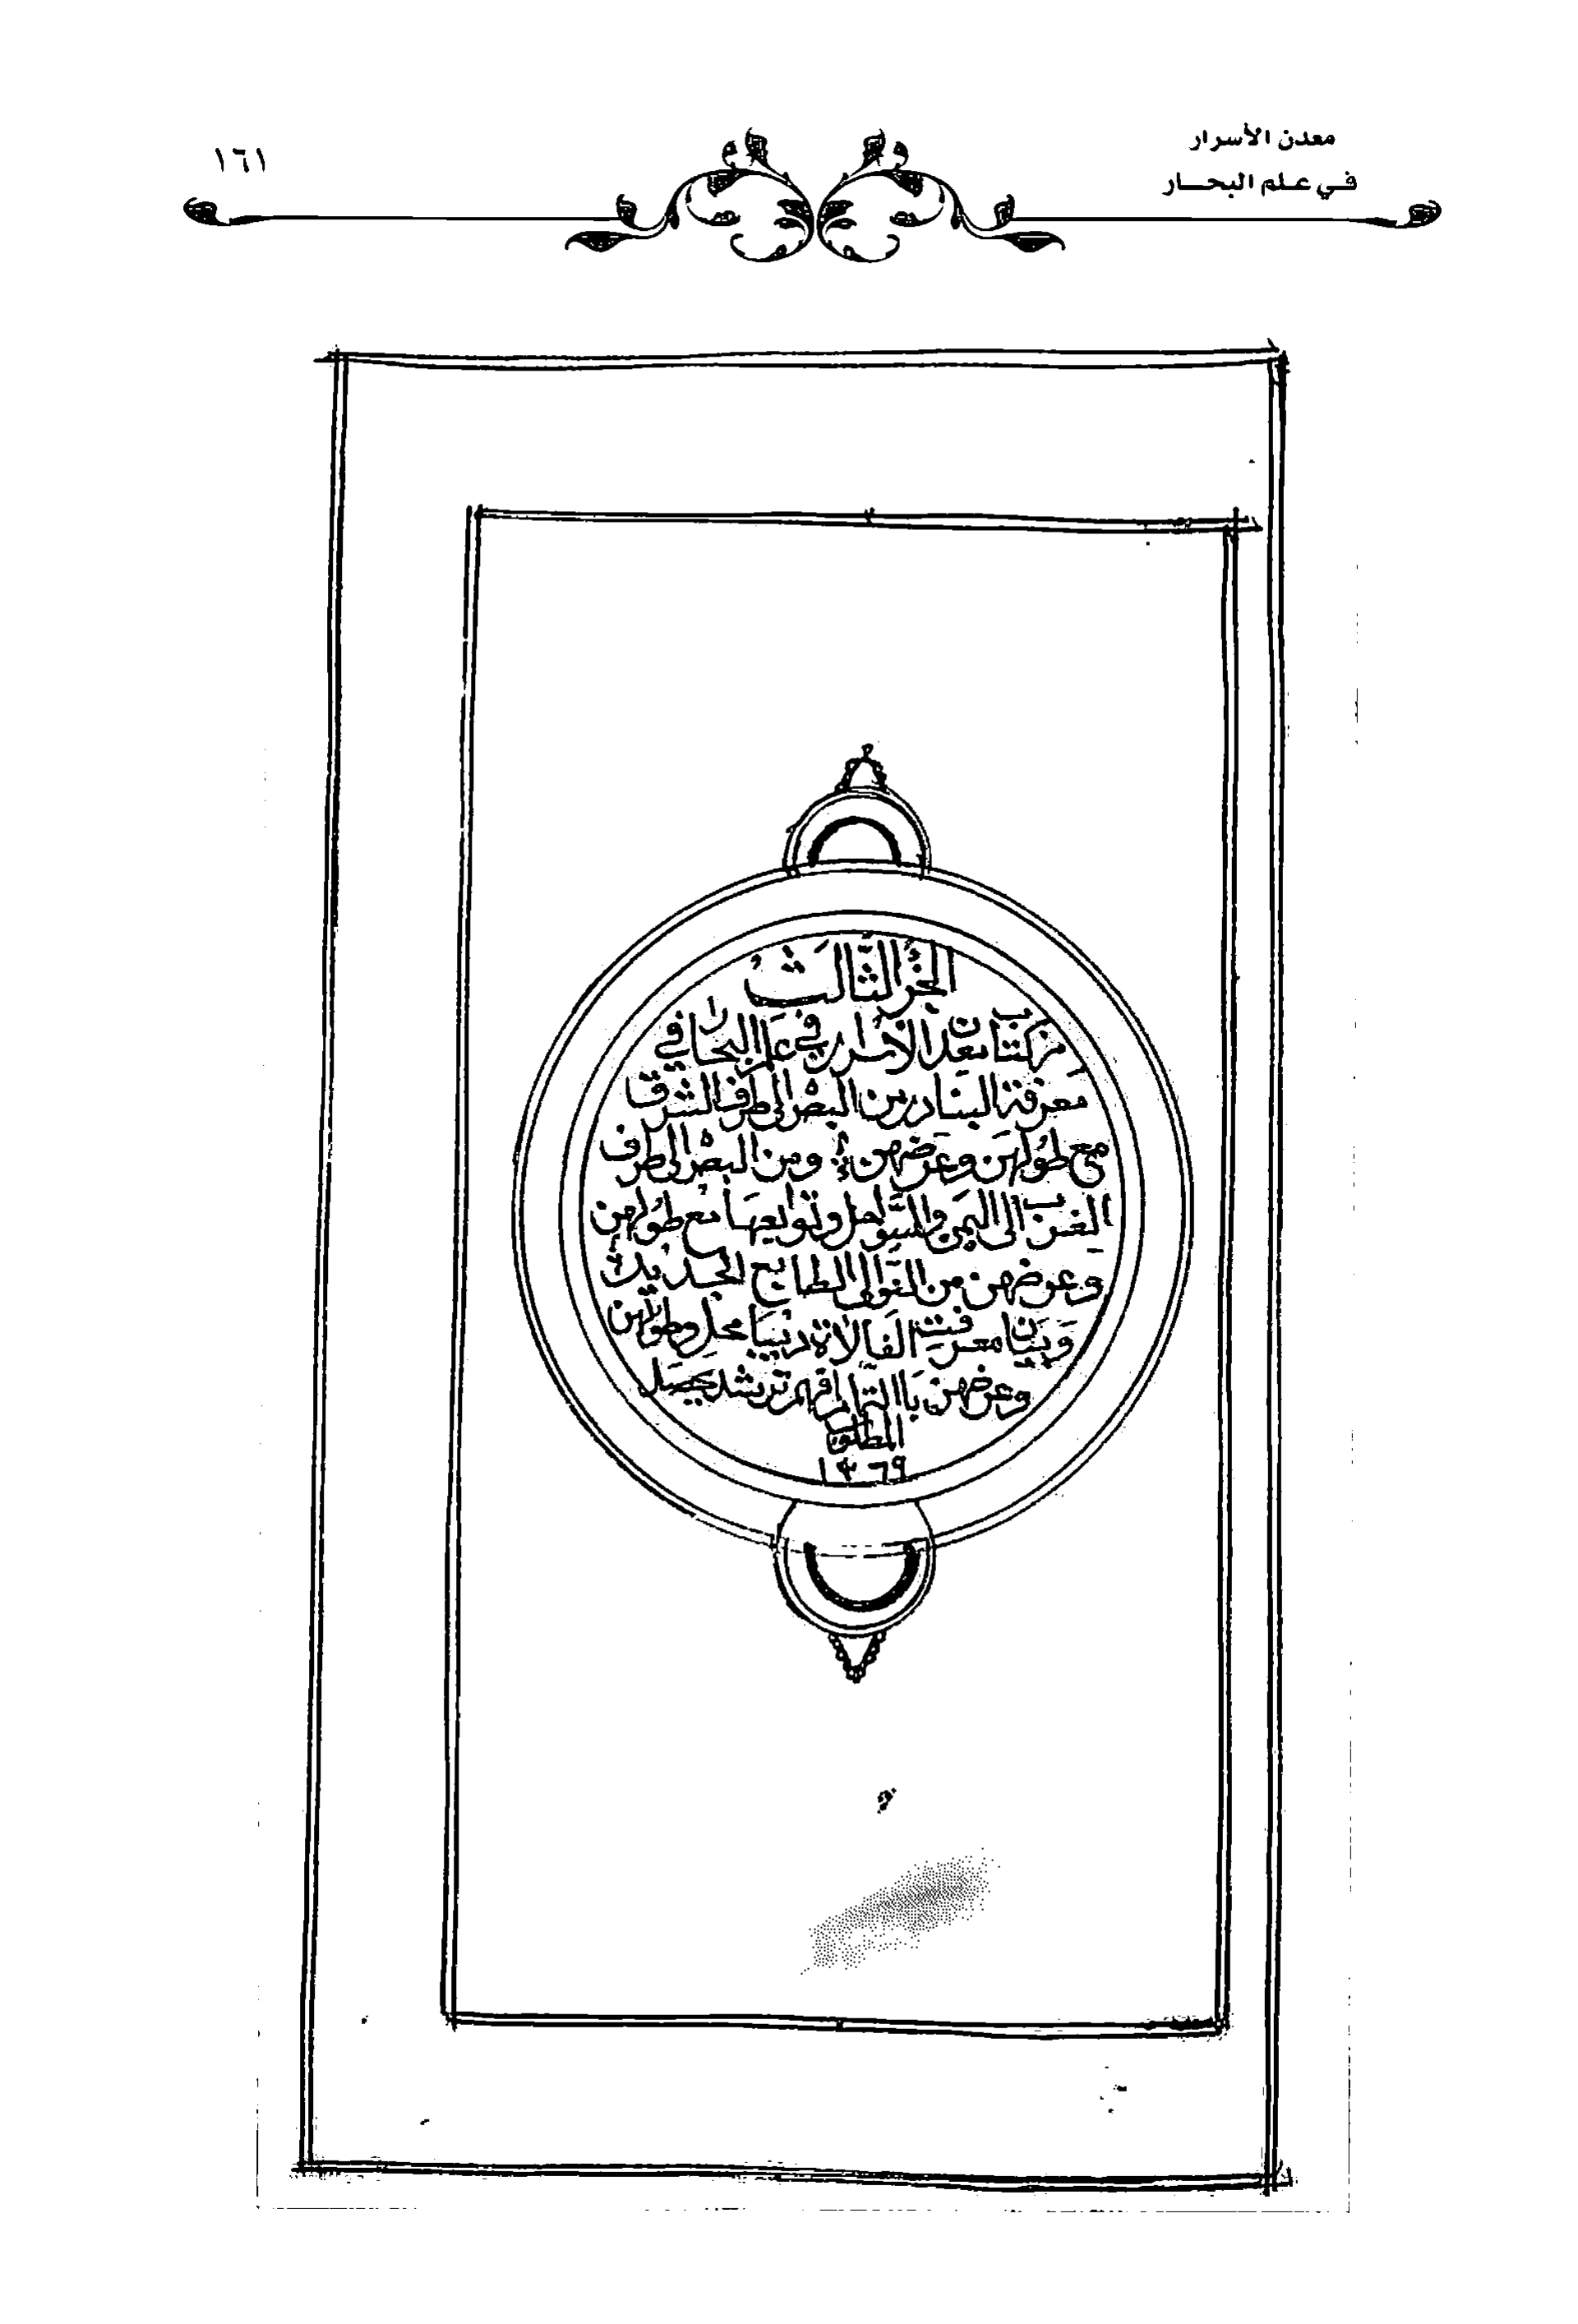 معدن الأسرار
في علم البحار
١٦١
الجزء الثالث
من كتاب معدن الأسرار في علم البحار في
معرفة البنادر من البصرة الى طرف الشرق
مع طولهن وعرضهن ومن البصرة الى طرف
الغرب الى اليمن والسواحل وتوابعها مع طولهن
وعرضهن من النوالى الطابع الجديد
وبيان معرفت الفالات دنيا محل وطولهن
وعرضهن باالتمام ترشد يحصل
المطلوب
١٣٦٩